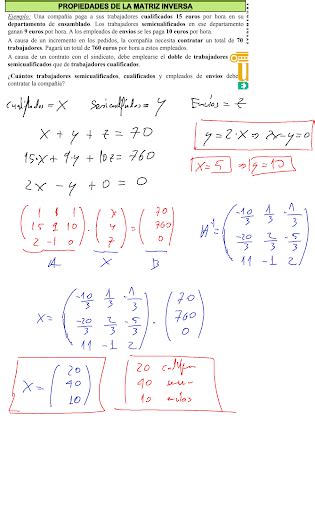 PROPIEDADES DE LA MATRIZ INVERSA
Ejemplo: Una compañía paga a sus trabajadores cualificados 15 euros por hora en su
departamento de ensamblado. Los trabajadores semicualificados en ese departamento
ganan 9 euros por hora. A los empleados de envíos se les paga 10 euros por hora.
A causa de un incremento en los pedidos, la compañía necesita contratar un total de 70
trabajadores. Pagará un total de 760 euros por hora a estos empleados.
A causa de un contrato con el sindicato, debe emplearse el doble de trabajadores
semicualificados que de trabajadores cualificados.
¿Cuántos trabajadores semicualificados, cualificados y empleados de envíos debe
contratar la compañía?
Cualificados = X Semicualificados = Y Envíos = Z
X + y + z = 70
y = 2·X ⇒ 2x-y=0
15·X + 9·y + 10z = 760
X=5 ⇒ y=10
2X - y + 0 = 0
( 1 1 1 ) ( X ) ( 70 )
( 15 9 10 ) · ( y ) = ( 760 )
( 2 -1 0 ) ( z ) ( 0 )
A X B
A⁻¹ = ( -10/3 1/3 -1/3 )
( -20/3 2/3 -5/3 )
( 11 -1 2 )
X = ( -10/3 1/3 -1/3 ) ( 70 )
( -20/3 2/3 -5/3 ) · ( 760 )
( 11 -1 2 ) ( 0 )
X = ( 20 )
( 40 )
( 10 )
20
40
10 envíos